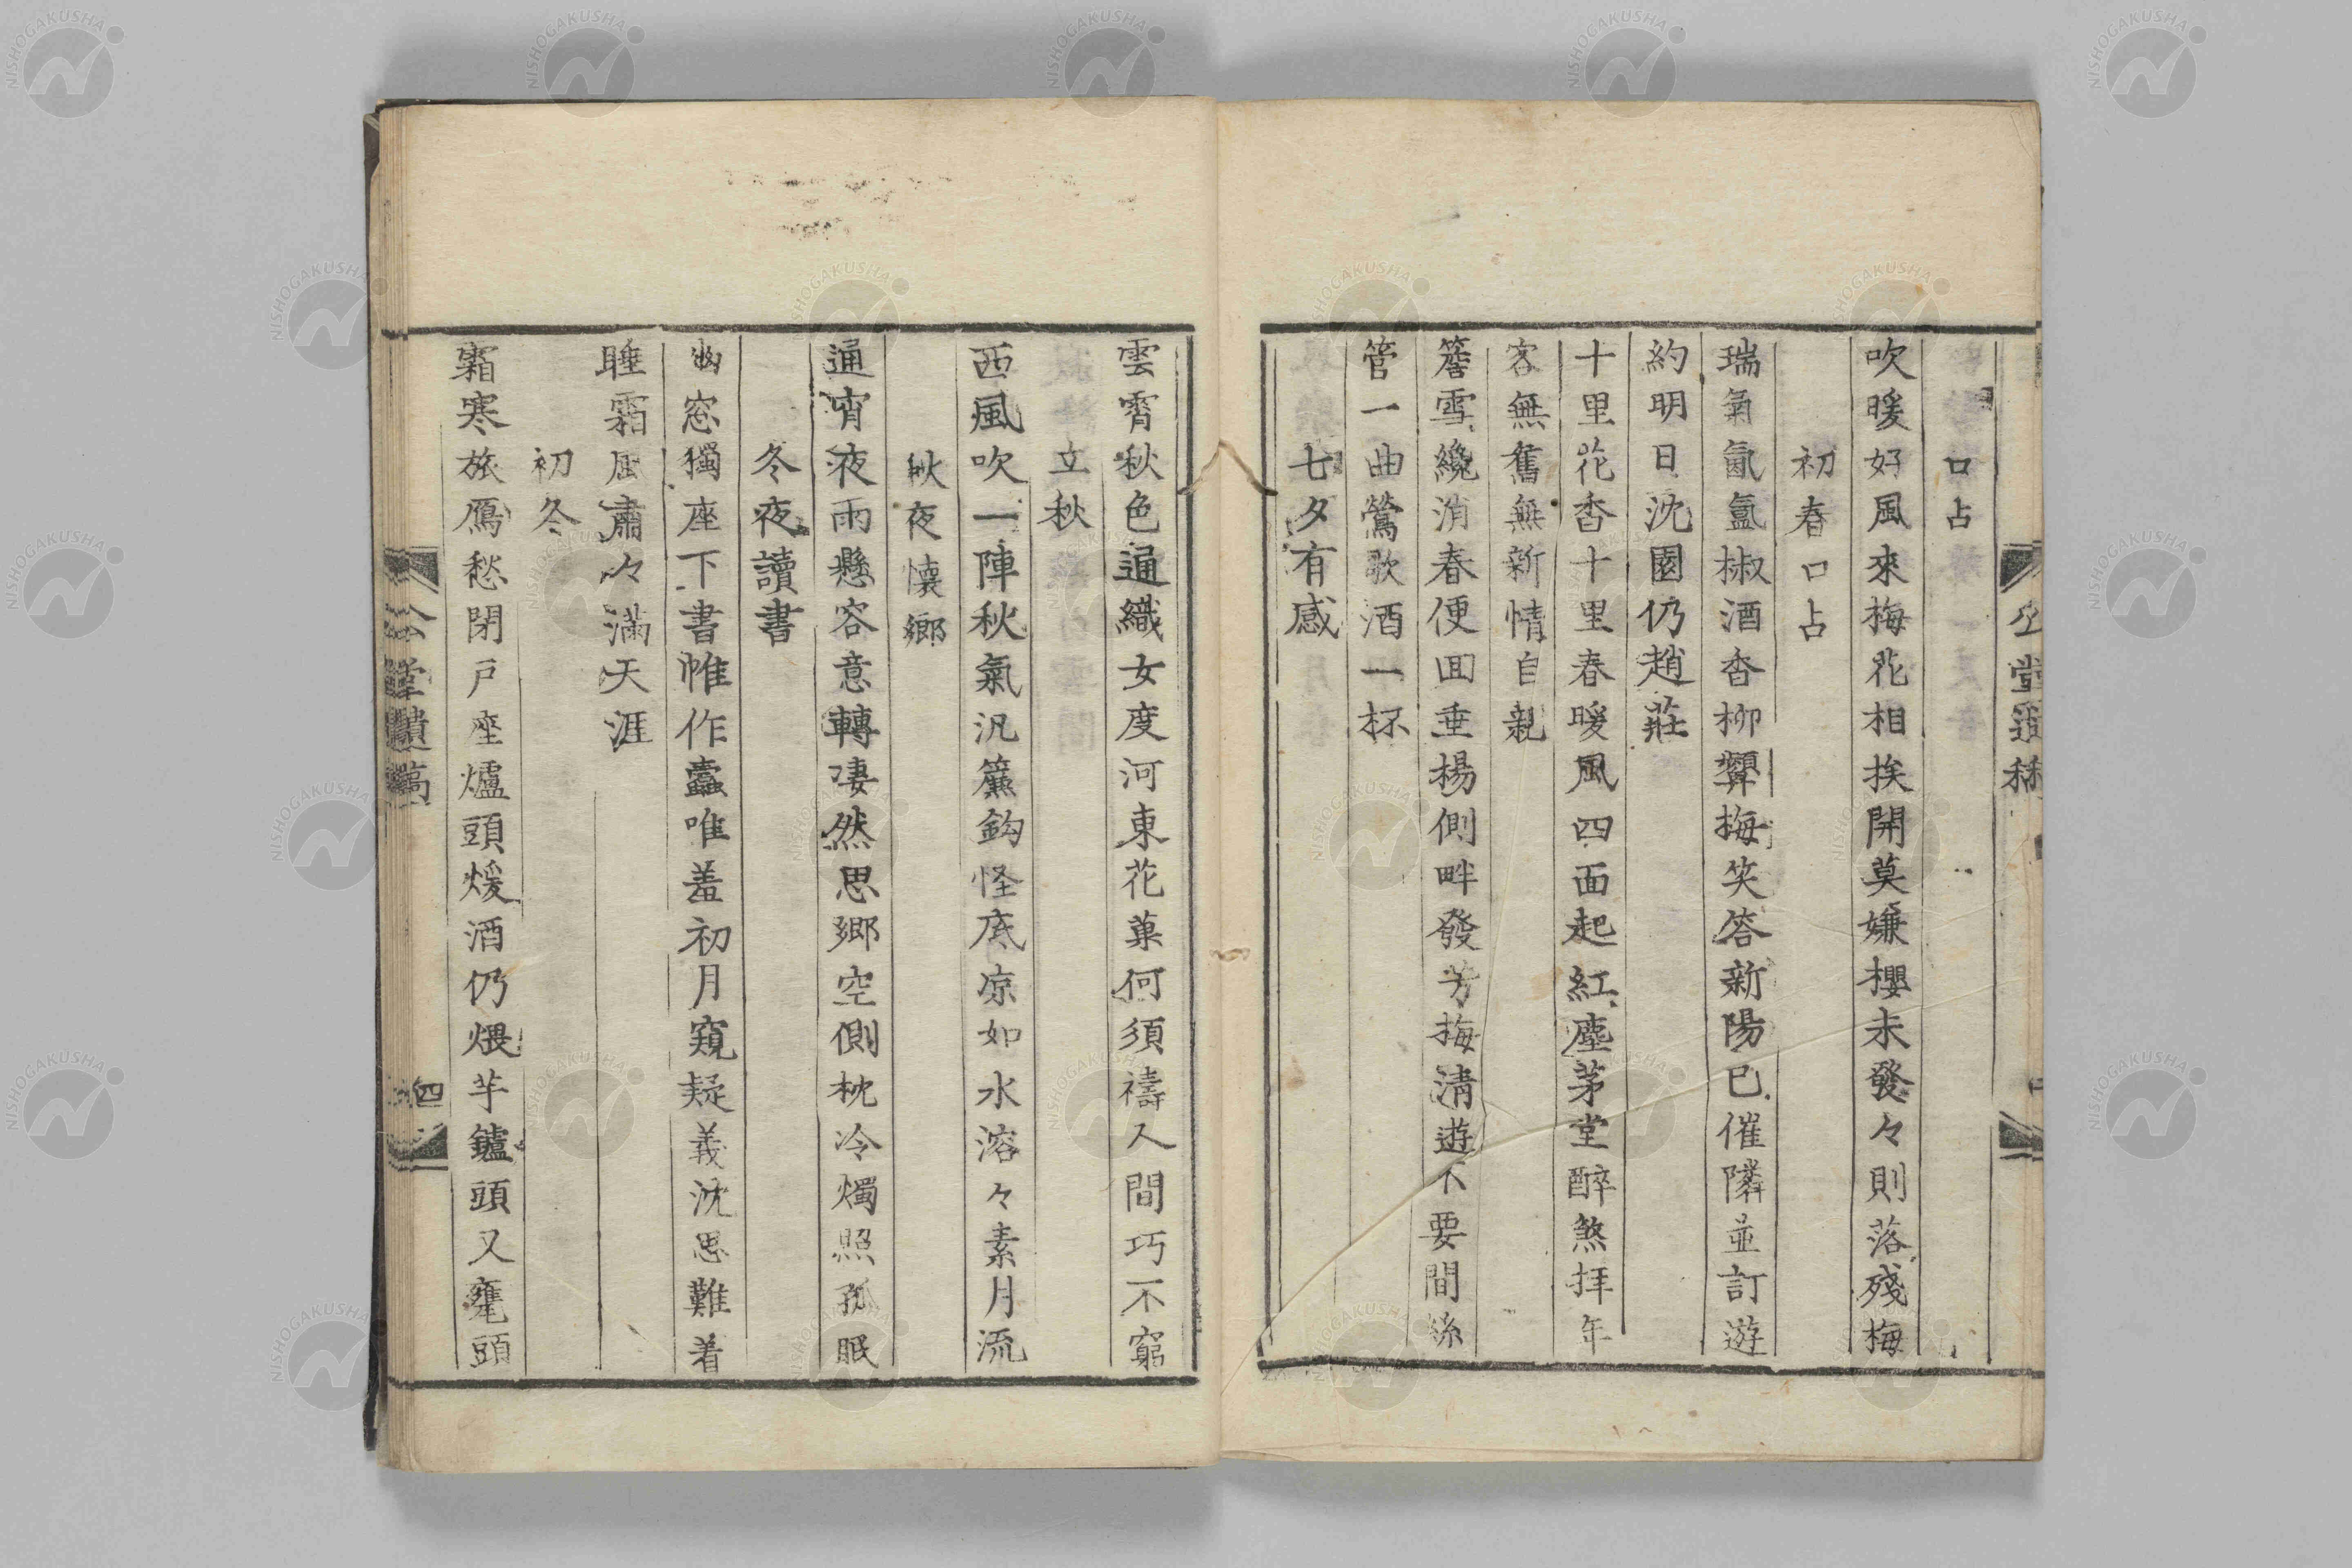 口占
吹暖好風來梅花相挨開莫嫌櫻未發々則落殘梅
初春口占
瑞氣氤氳椒酒杳柳顰梅笑答新陽已催隣並訂遊
約明日沈園仍趙莊
十里花杳十里春暖風風四面起紅塵茅堂醉煞拜年
客無舊無新情自親
簷雪纔消春便回垂楊側畔發芳梅淸遊不要間絲
管一曲鶯歌酒一杯
七夕有感
雲霄秋色通織女度河東花菓何須禱人間巧不窮
立秋
西風吹一陣秋氣汎簾鈎怪底凉如水溶々素月流
秋夜懷鄉
通宵夜雨懸容意轉凄然思鄉空側枕冷燭照孤眠
冬夜讀書
幽窓獨座下書帷作蠹唯羞初月窺疑義沈思難着
睡霜風肅々滿天涯
初冬
霜寒旅鴈愁閉戶座爐頭煖酒仍煨芋鑪頭又甕頭
公堂遺稿
四